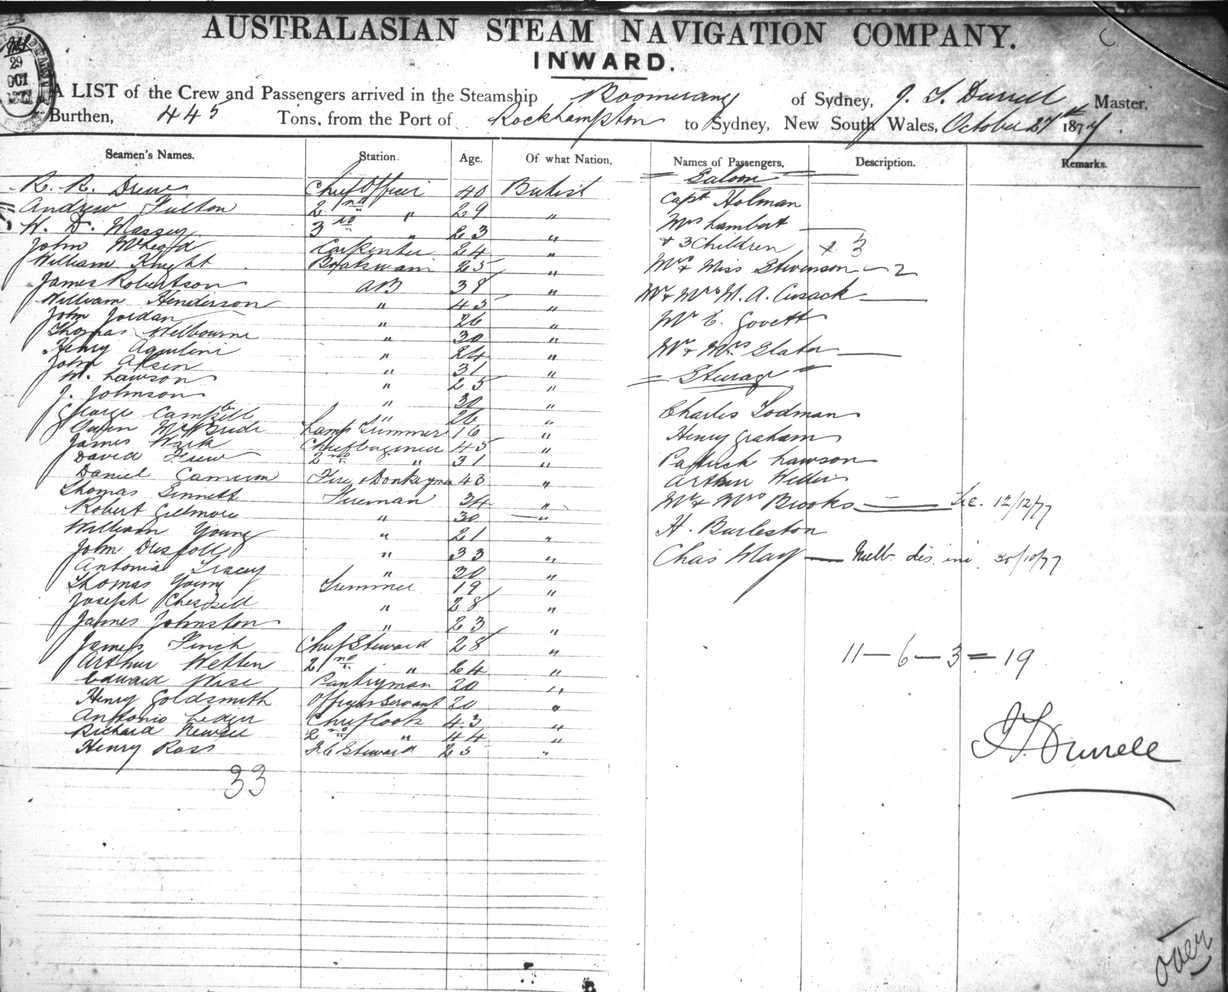 AUSTRALASIAN STEAM NAVIGATION COMPANY.
INWARD.
29
OCT
A LIST of the Crew and Passengers arrived in the Steamship Boomerang of Sydney, J. T. Durrell Master.
Burthen, 445 Tons, from the Port of Rockhampton to Sydney, New South Wales, October 27th 1877
Seamen's Names. Station. Age. Of what Nation. Names of Passengers. Description. Remarks.
R. R. Drew Chief Officer 40 British
Andrew Fulton 2nd " 29 "
W. D. Massey 3rd " 23 "
John McLeod Carpenter 24 "
William Knight Boatswain 25 "
James Robertson AB 38 "
William Henderson " 45 "
John Jordan " 26 "
Thomas Melbourne " 30 "
Henry " 24 "
John " 31 "
W. Lawson " 25 "
J. Johnson " 30 "
George Campbell " 26 "
Owen McBride Lamp Trimmer 16 "
James Wark Chief Engineer 45 "
David Frew 2nd " 31 "
Daniel Cameron Fire & Donkeyman 43 "
Thomas Sinnett Fireman 34 "
Robert Gilmore " 30 "
William Young " 21 "
John Driscoll " 33 "
Antonio Tracey " 30 "
Thomas Young Trimmer 19 "
Joseph " 28 "
James Johnston " 23 "
James Finch Chief Steward 28 "
Arthur Wetten 2nd " 24 "
Edward Wise Pantryman 20 "
Henry Goldsmith Officers Servant 20 "
Antonio Chief Cook 43 "
Richard 2nd " 44 "
Henry Ross F.C Steward 25 "
33
Saloon
Capt Holman
Mrs Lambert
+ 3 Children + 3
Mr & Miss Stevenson 2
Mr & Mrs W. A. Cusack
Mr E. Govett
Mr & Mrs Slater
Steerage
Charles Todman
Henry Graham
Patrick Lawson
Arthur
Mr & Mrs Brooks 12/12/77
H. Burleston
Chas May 30/10/77
11 — 6 — 3 = 19
J T Durrell
over